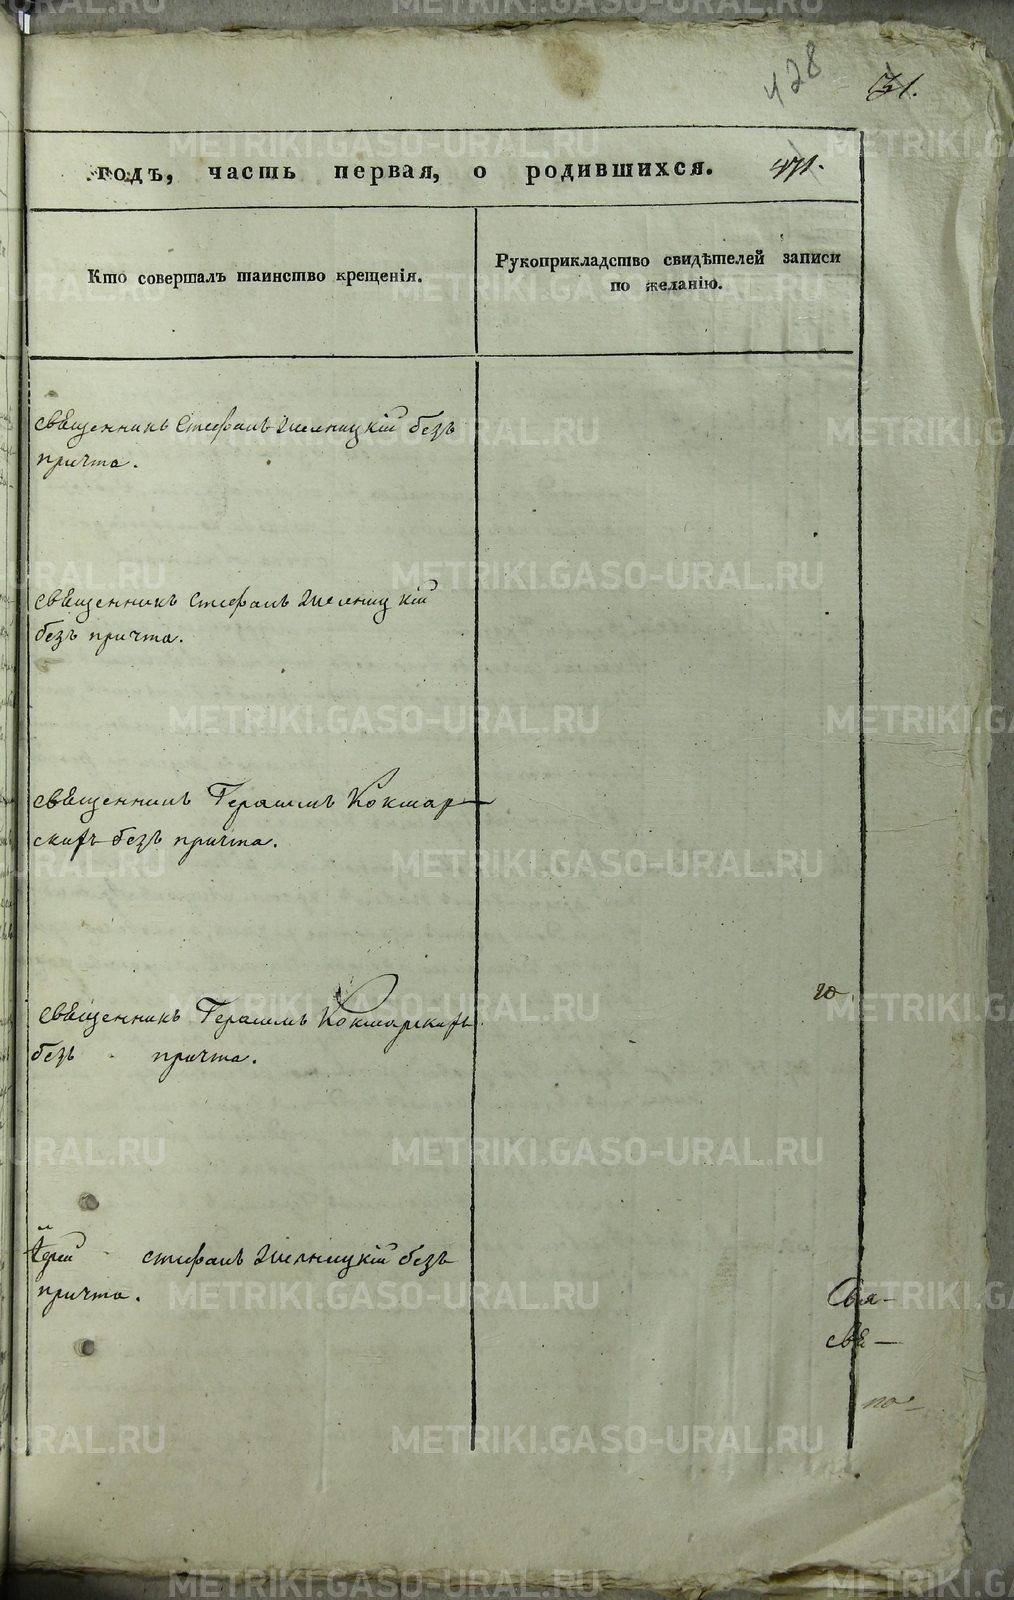 428
31.
годъ, часть первая, о родившихся.
Кто совершалъ таинство крещенія.
Рукоприкладство свидѣтелей записи
по желанію.
священникъ Стефанъ безъ
причта.
священникъ Стефанъ
безъ причта.
священникъ Герасимъ Кокшар-
скихъ безъ причта.
священникъ Герасимъ Кокшарскихъ
безъ причта.
Іерей Стефанъ безъ
причта.
свѣ-
по-
METRIKI.GASO-URAL.RU